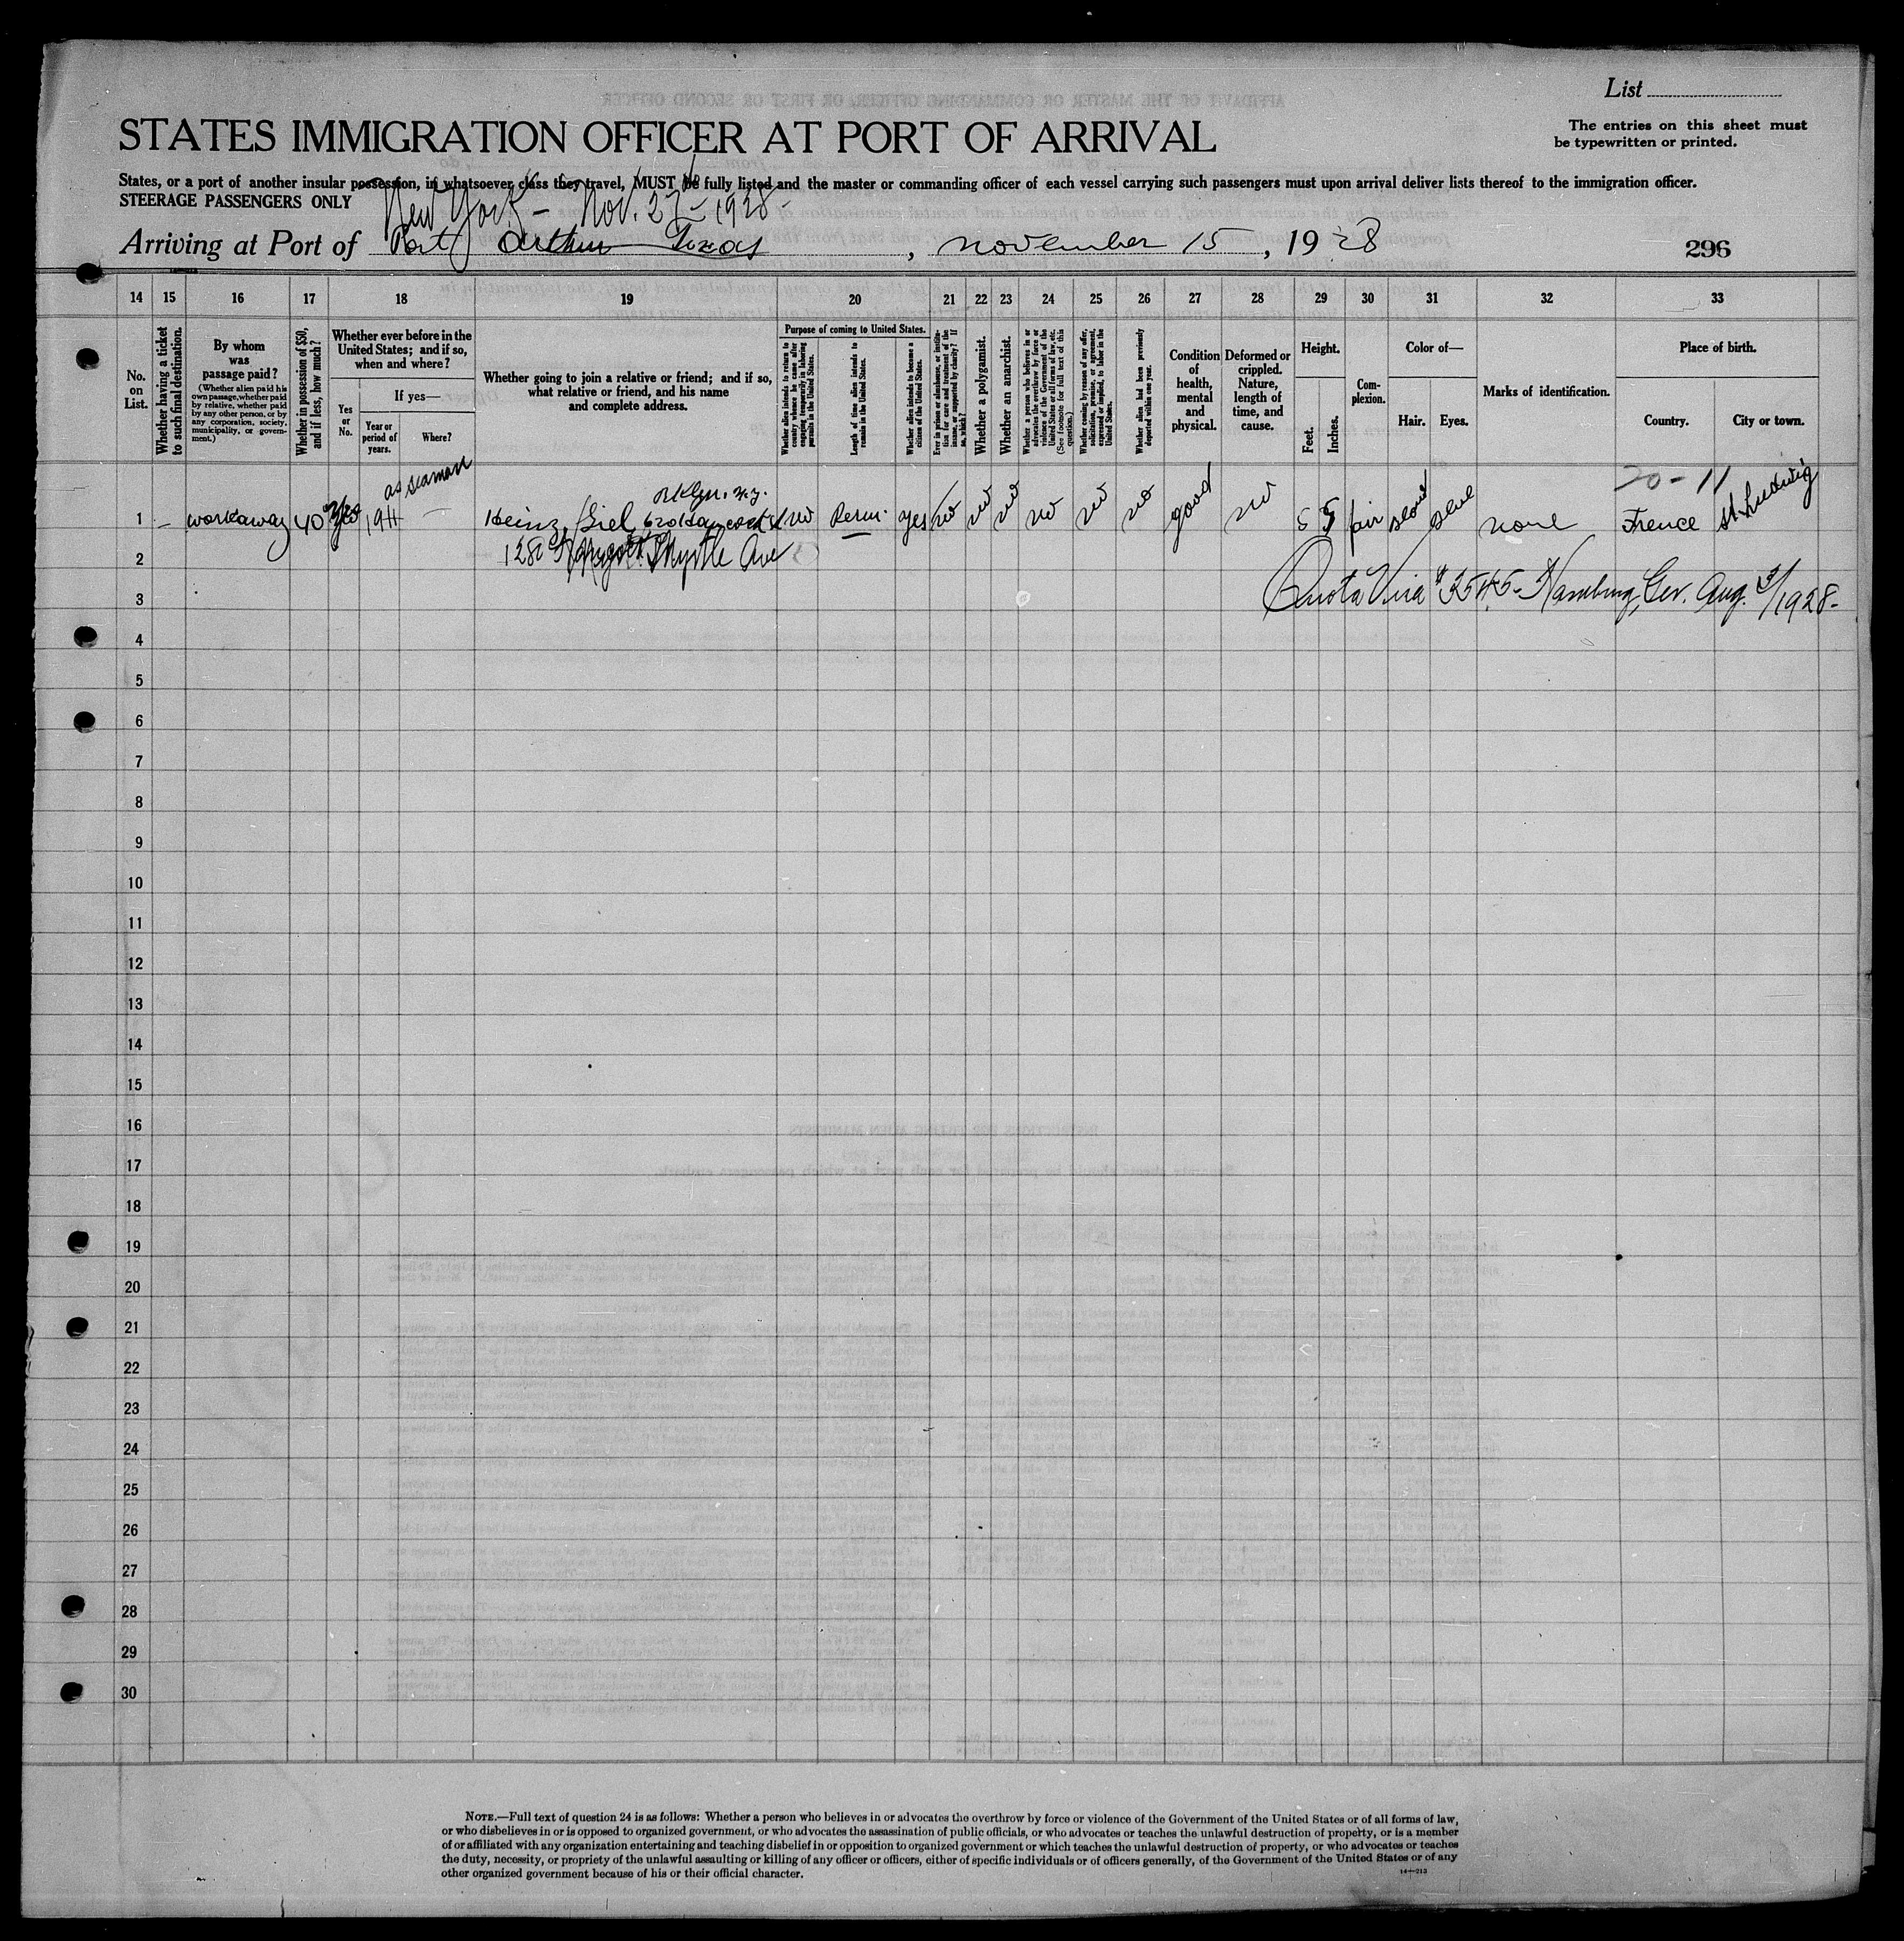 List
The entries on this sheet must
be typewritten or printed.
STATES IMMIGRATION OFFICER AT PORT OF ARRIVAL
States, or a port of another insular possession, in whatsoever class they travel, MUST be fully listed and the master or commanding officer of each vessel carrying such passengers must upon arrival deliver lists thereof to the immigration officer.
STEERAGE PASSENGERS ONLY
New York - Nov. 27 - 1928 -
Arriving at Port of Port Arthur Texas, november 15, 1928
296
14 15 16 17 18 19 20 21 22 23 24 25 26 27 28 29 30 31 32 33
No. on List.
Whether having a ticket to such final destination.
By whom was passage paid?
(Whether alien paid his own passage, whether paid by relative, whether paid by any other person, or by any corporation, society, municipality, or government.)
Whether in possession of $50, and if less, how much?
Whether ever before in the United States; and if so, when and where?
Yes or No.
If yes—
Year or period of years.
Where?
Whether going to join a relative or friend; and if so, what relative or friend, and his name and complete address.
Purpose of coming to United States.
Whether alien intends to return to country whence he came after engaging temporarily in laboring pursuits in the United States.
Length of time alien intends to remain in the United States.
Whether alien intends to become a citizen of the United States.
Ever in prison or almshouse, or institution for care and treatment of the insane, or supported by charity? If so, which?
Whether a polygamist.
Whether an anarchist.
Whether a person who believes in or advocates the overthrow by force or violence of the Government of the United States or all forms of law, etc. (See footnote for full text of this question.)
Whether coming by reason of any offer, solicitation, promise, or agreement, expressed or implied, to labor in the United States.
Whether alien had been previously deported within one year.
Condition of health, mental and physical.
Deformed or crippled. Nature, length of time, and cause.
Height.
Feet. Inches.
Complexion.
Color of—
Hair. Eyes.
Marks of identification.
Place of birth.
Country. City or town.
as seaman
20-11
1 – workaway 40 yes 19 — Heinz no Perm. yes no no no no no no good no 5 5 fair none France St. Ludwig
2 128 Myrtle Ave
3 Quota Visa # 3545 - Hamburg, Ger. Aug. 3/1928 -
4
5
6
7
8
9
10
11
12
13
14
15
16
17
18
19
20
21
22
23
24
25
26
27
28
29
30
NOTE.—Full text of question 24 is as follows: Whether a person who believes in or advocates the overthrow by force or violence of the Government of the United States or of all forms of law,
or who disbelieves in or is opposed to organized government, or who advocates the assassination of public officials, or who advocates or teaches the unlawful destruction of property, or is a member
of or affiliated with any organization entertaining and teaching disbelief in or opposition to organized government or which teaches the unlawful destruction of property, or who advocates or teaches
the duty, necessity, or propriety of the unlawful assaulting or killing of any officer or officers, either of specific individuals or of officers generally, of the Government of the United States or of any
other organized government because of his or their official character.
14—213